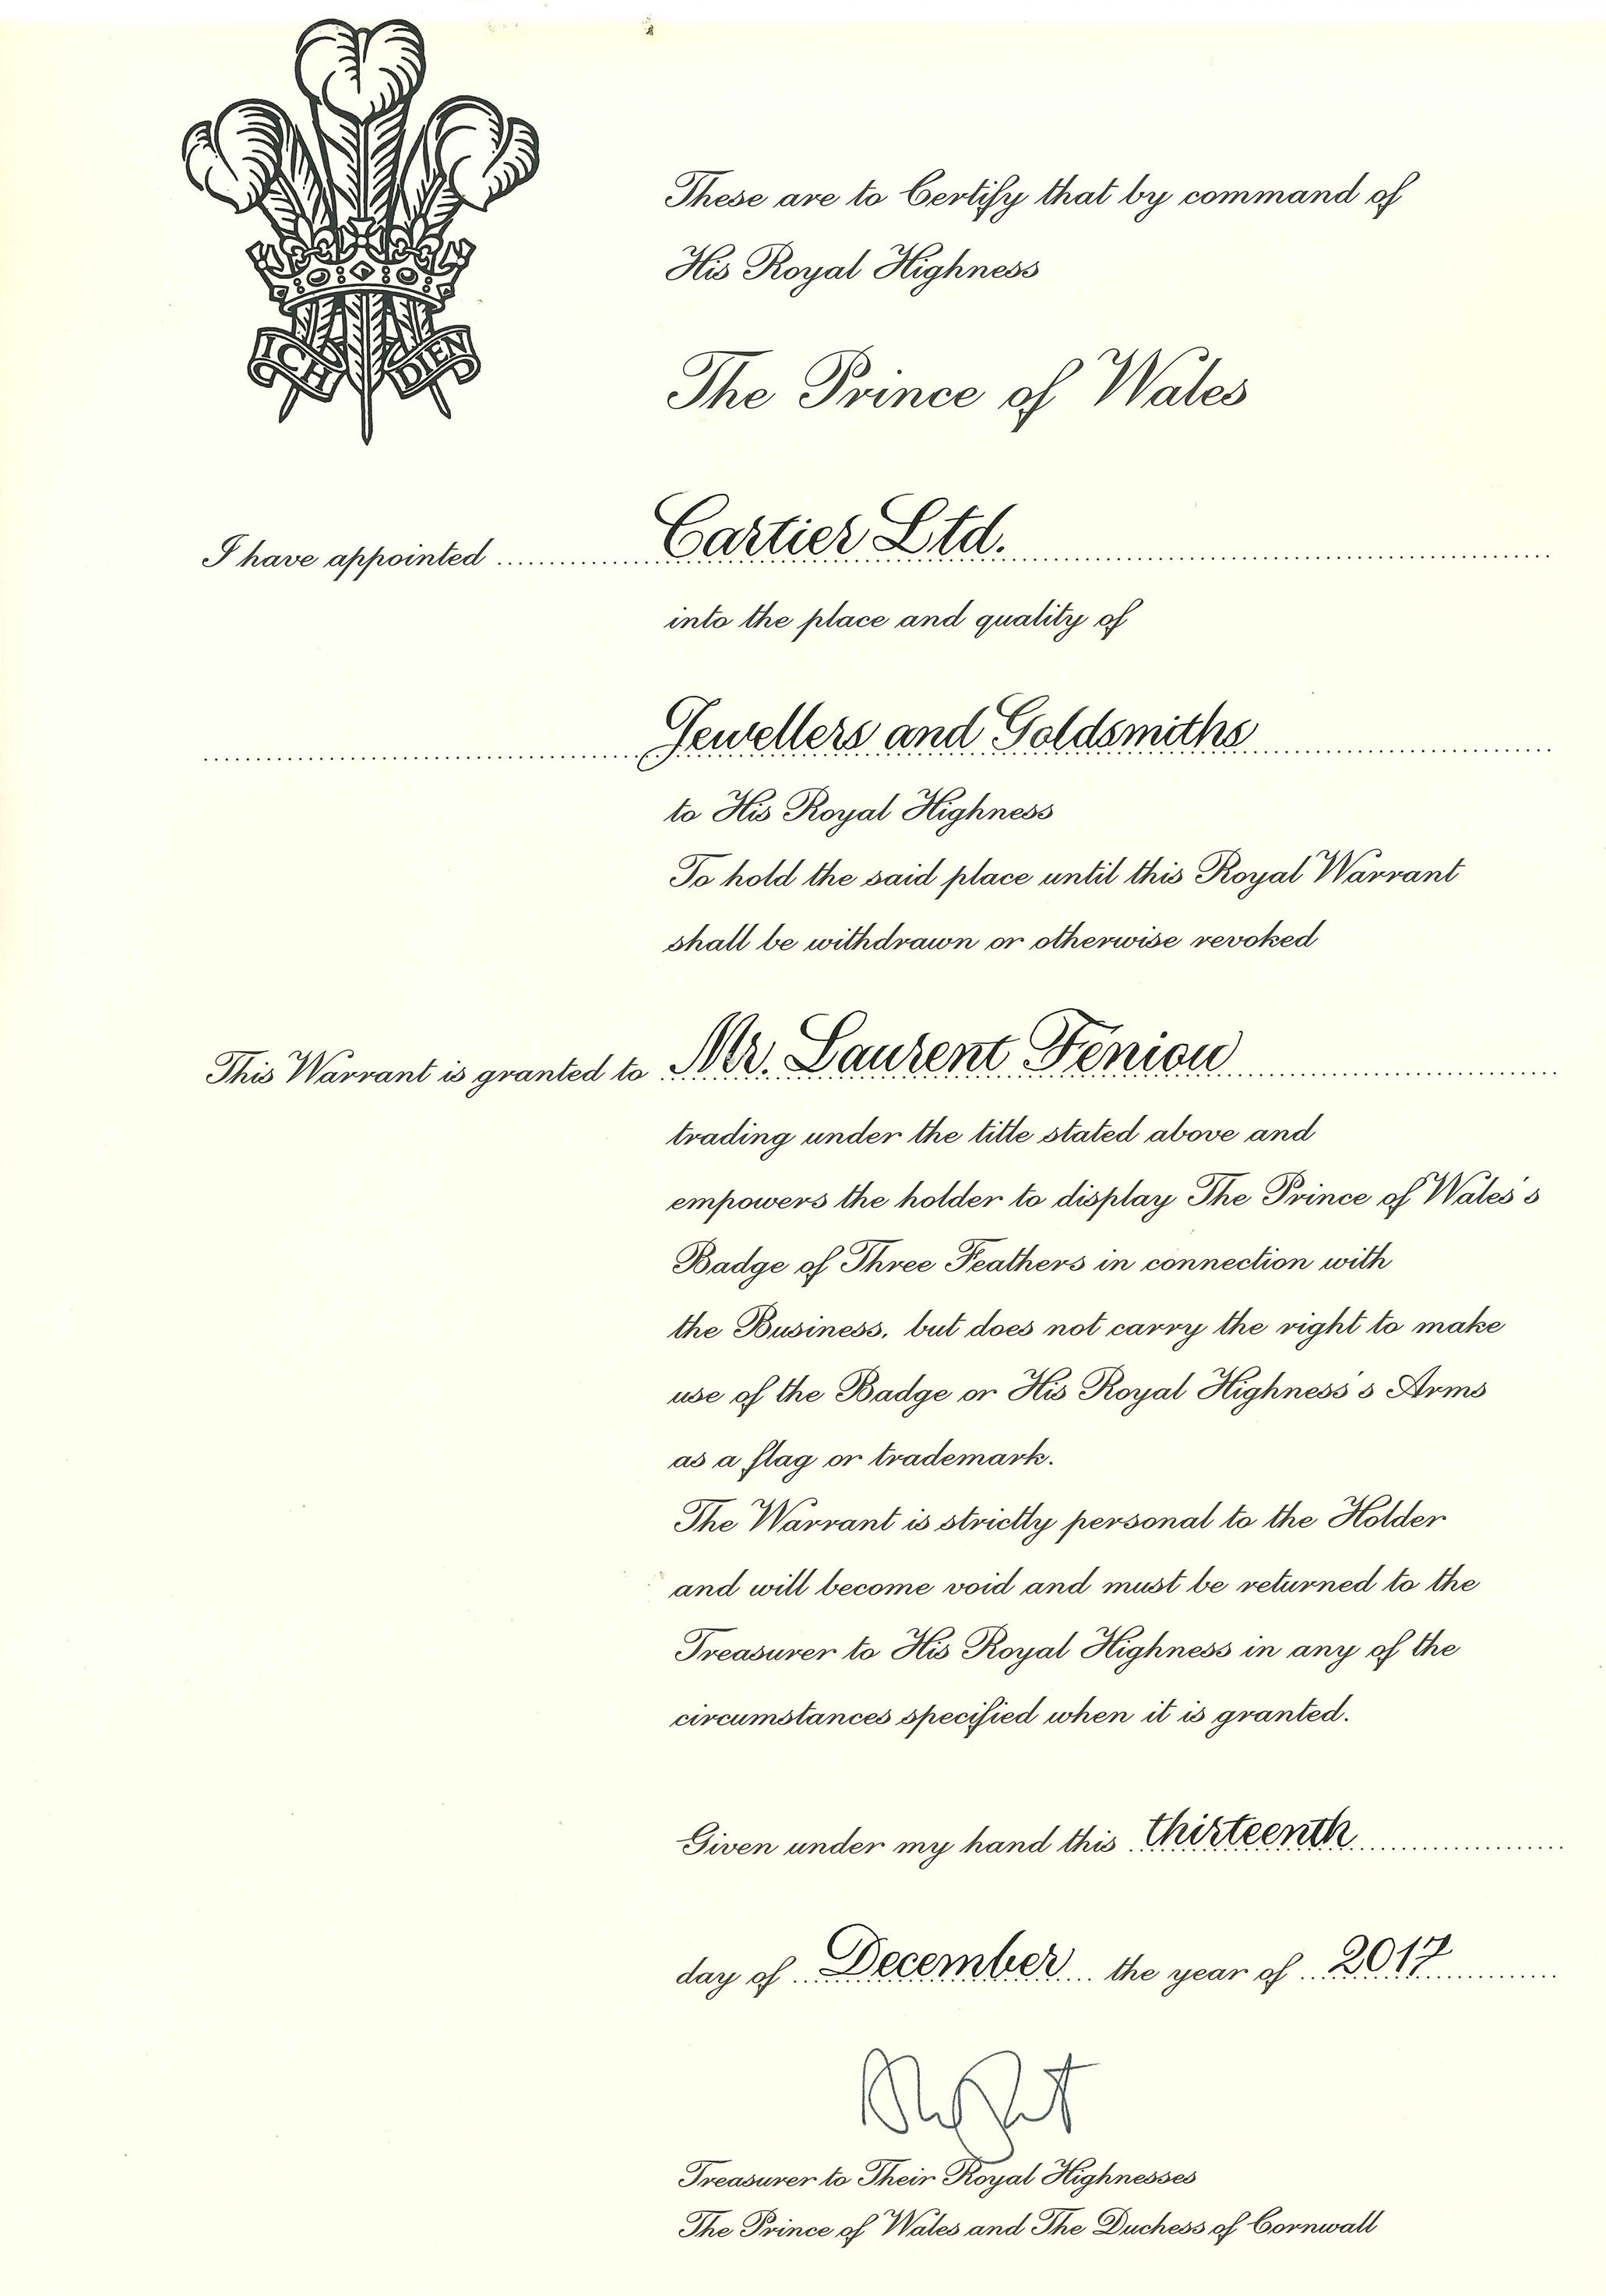 ICH DIEN
These are to Certify that by command of
His Royal Highness
The Prince of Wales
I have appointed Cartier Ltd.
into the place and quality of
Jewellers and Goldsmiths
to His Royal Highness
To hold the said place until this Royal Warrant
shall be withdrawn or otherwise revoked
This Warrant is granted to Mr. Laurent Feniou
trading under the title stated above and
empowers the holder to display The Prince of Wales's
Badge of Three Feathers in connection with
the Business, but does not carry the right to make
use of the Badge or His Royal Highness's Arms
as a flag or trademark.
The Warrant is strictly personal to the Holder
and will become void and must be returned to the
Treasurer to His Royal Highness in any of the
circumstances specified when it is granted.
Given under my hand this thirteenth
day of December the year of 2017
Treasurer to Their Royal Highnesses
The Prince of Wales and The Duchess of Cornwall